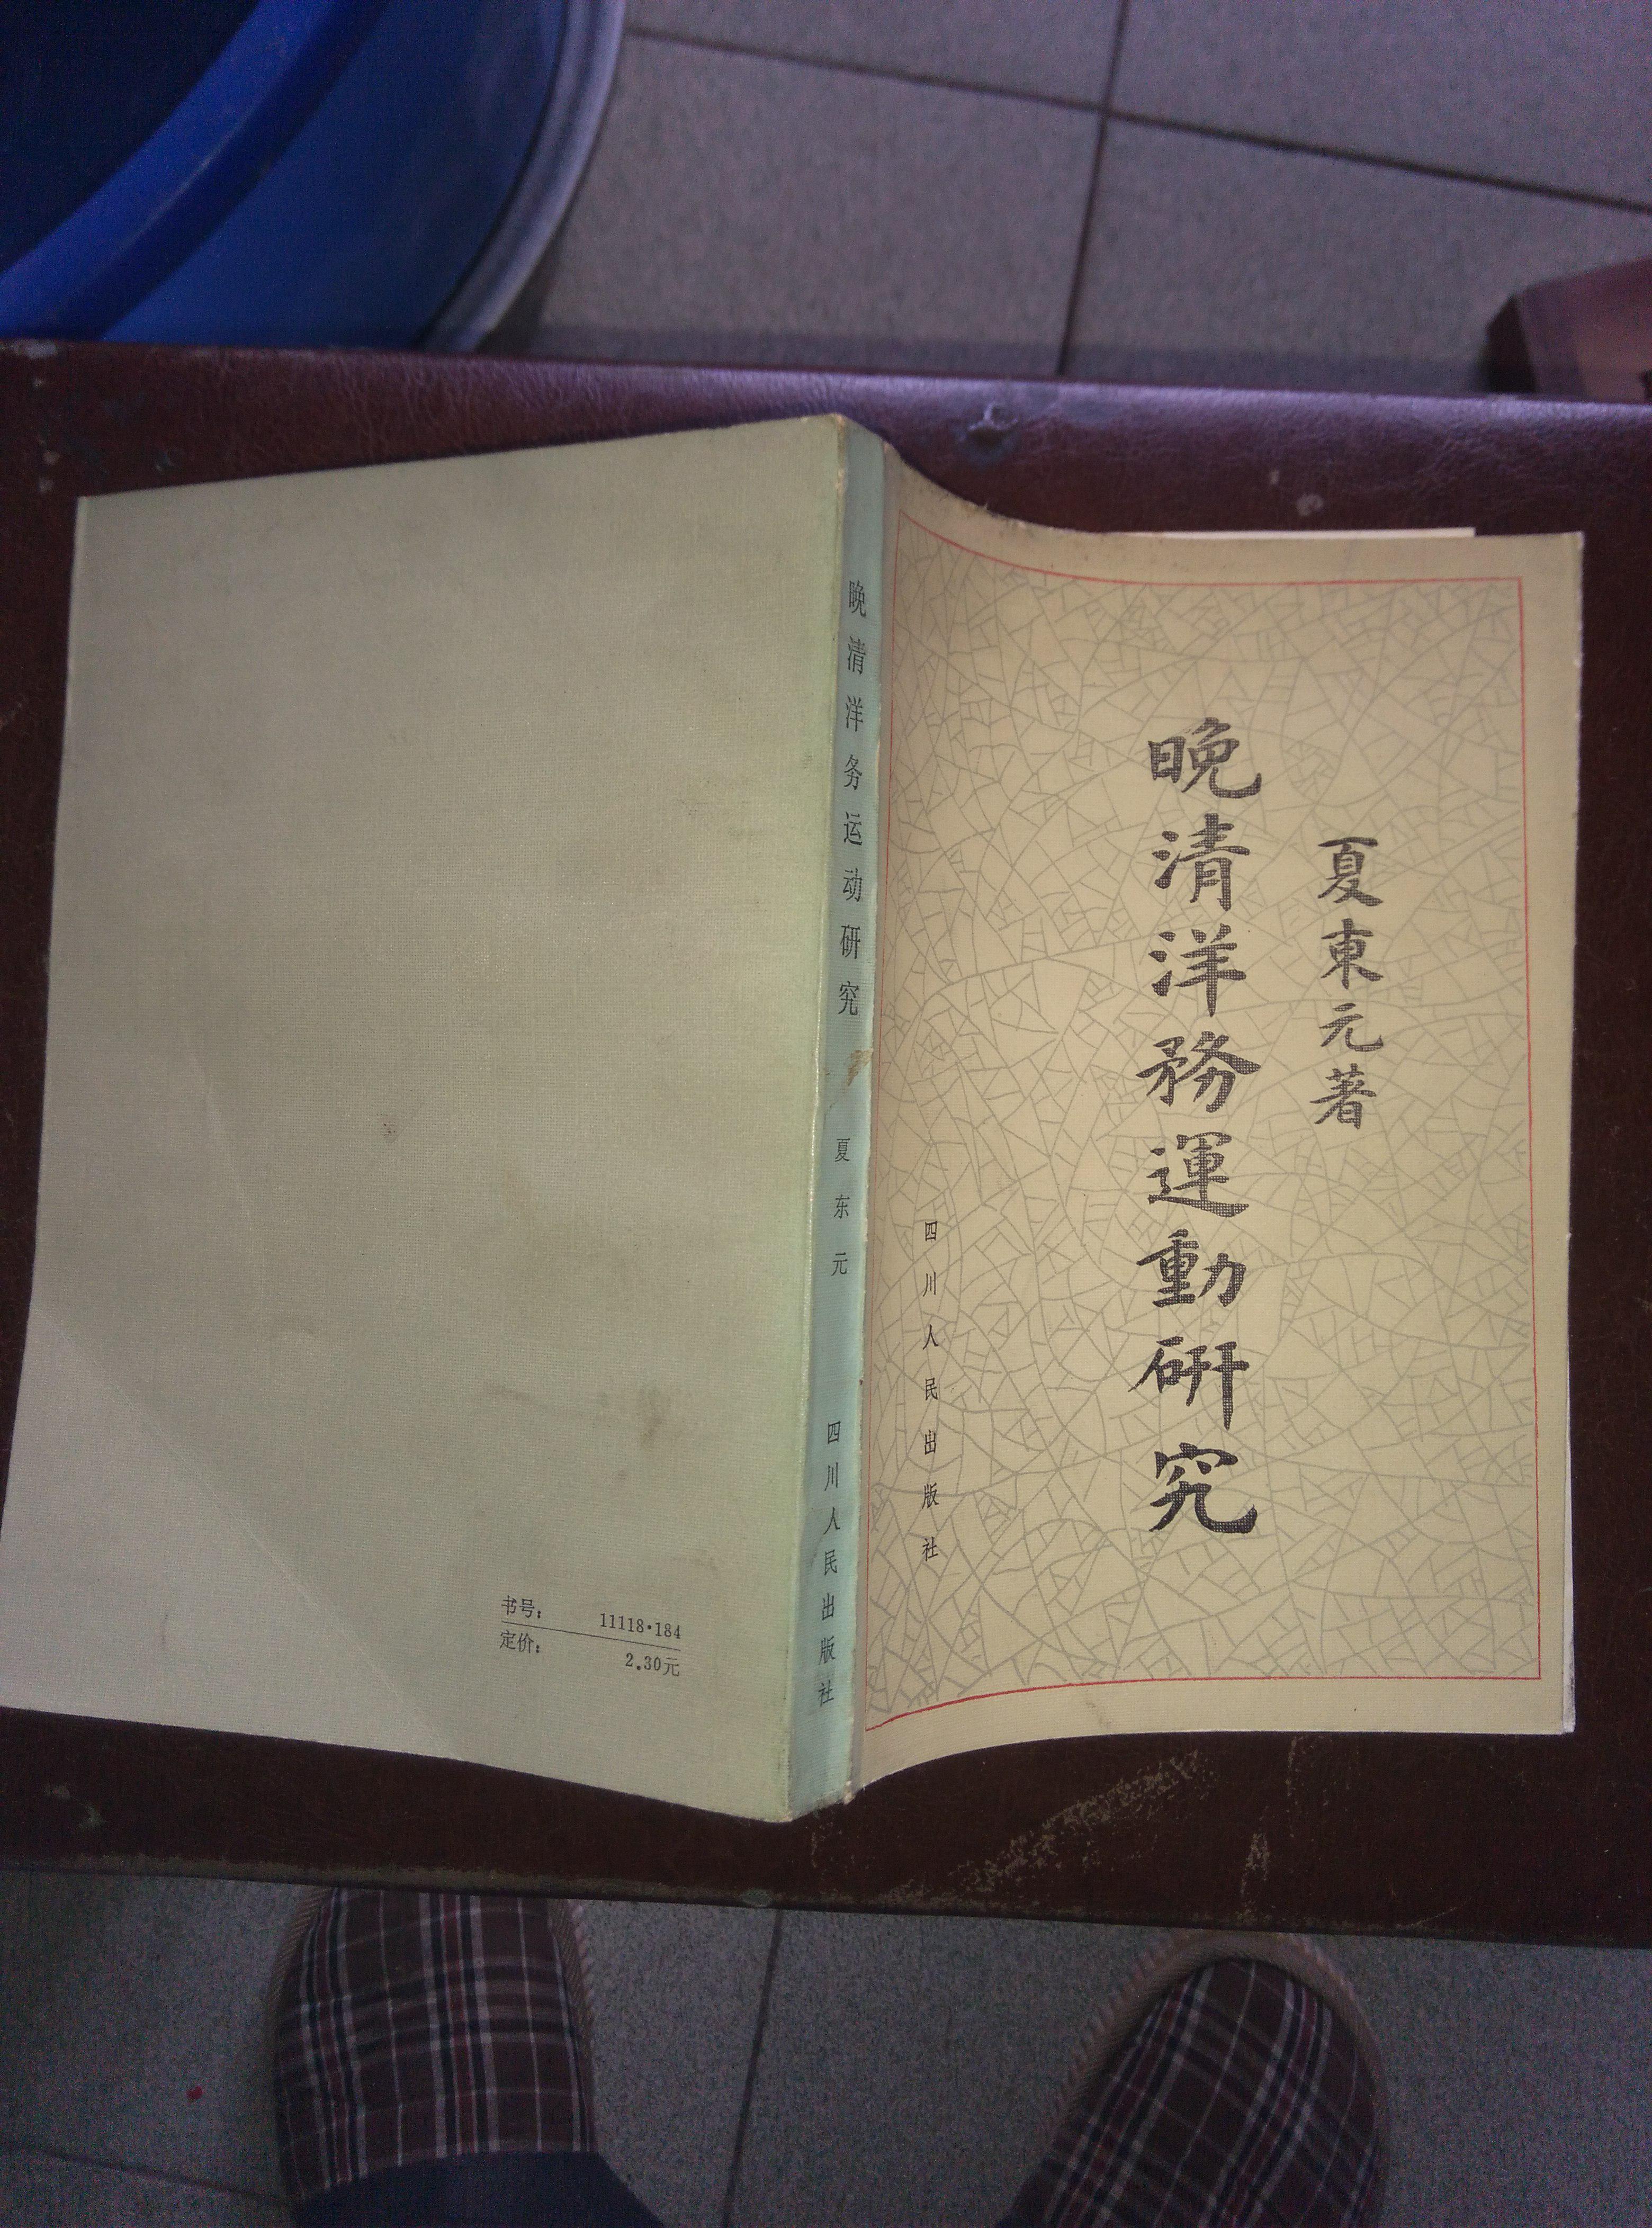 夏東元著
晚清洋務運動研究
四川人民出版社
晚清洋务运动研究
夏东元
四川人民出版社
书号： 11118·184
定价： 2.30元